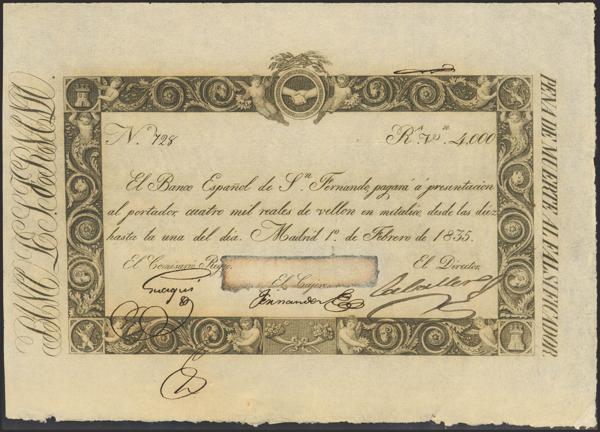 N. 728
R.ˢ V.ⁿ 4,000
El Banco Español de S.ⁿ Fernando, pagará á presentacion
al portador, cuatro mil reales de vellon en metalico, desde las diez
hasta la una del dia. Madrid 1º. de Febrero de 1835.
El Comisario Regio,
El Cajero
El Director
Fernandez
Caballero
PENA DE MUERTE AL FALSIFICADOR